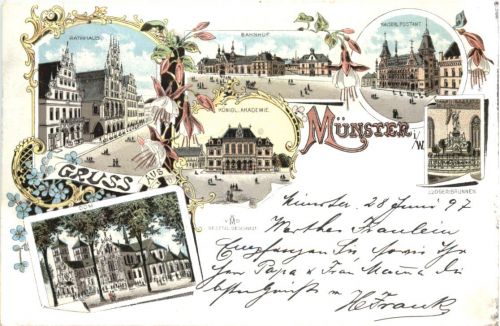 RATHHAUS.
BAHNHOF.
KAISERL. POSTAMT.
KÖNIGL. AKADEMIE.
MÜNSTER i/W.
LUDGERIBRUNNEN
GRUSS AUS
GESETZL. GESCHÜTZT.
Münster 28 Juni 97
Werthes Fräulein
Empfangen Sie sowie Ihr
Papa & Frau Mama die
besten Grüße
H Frank